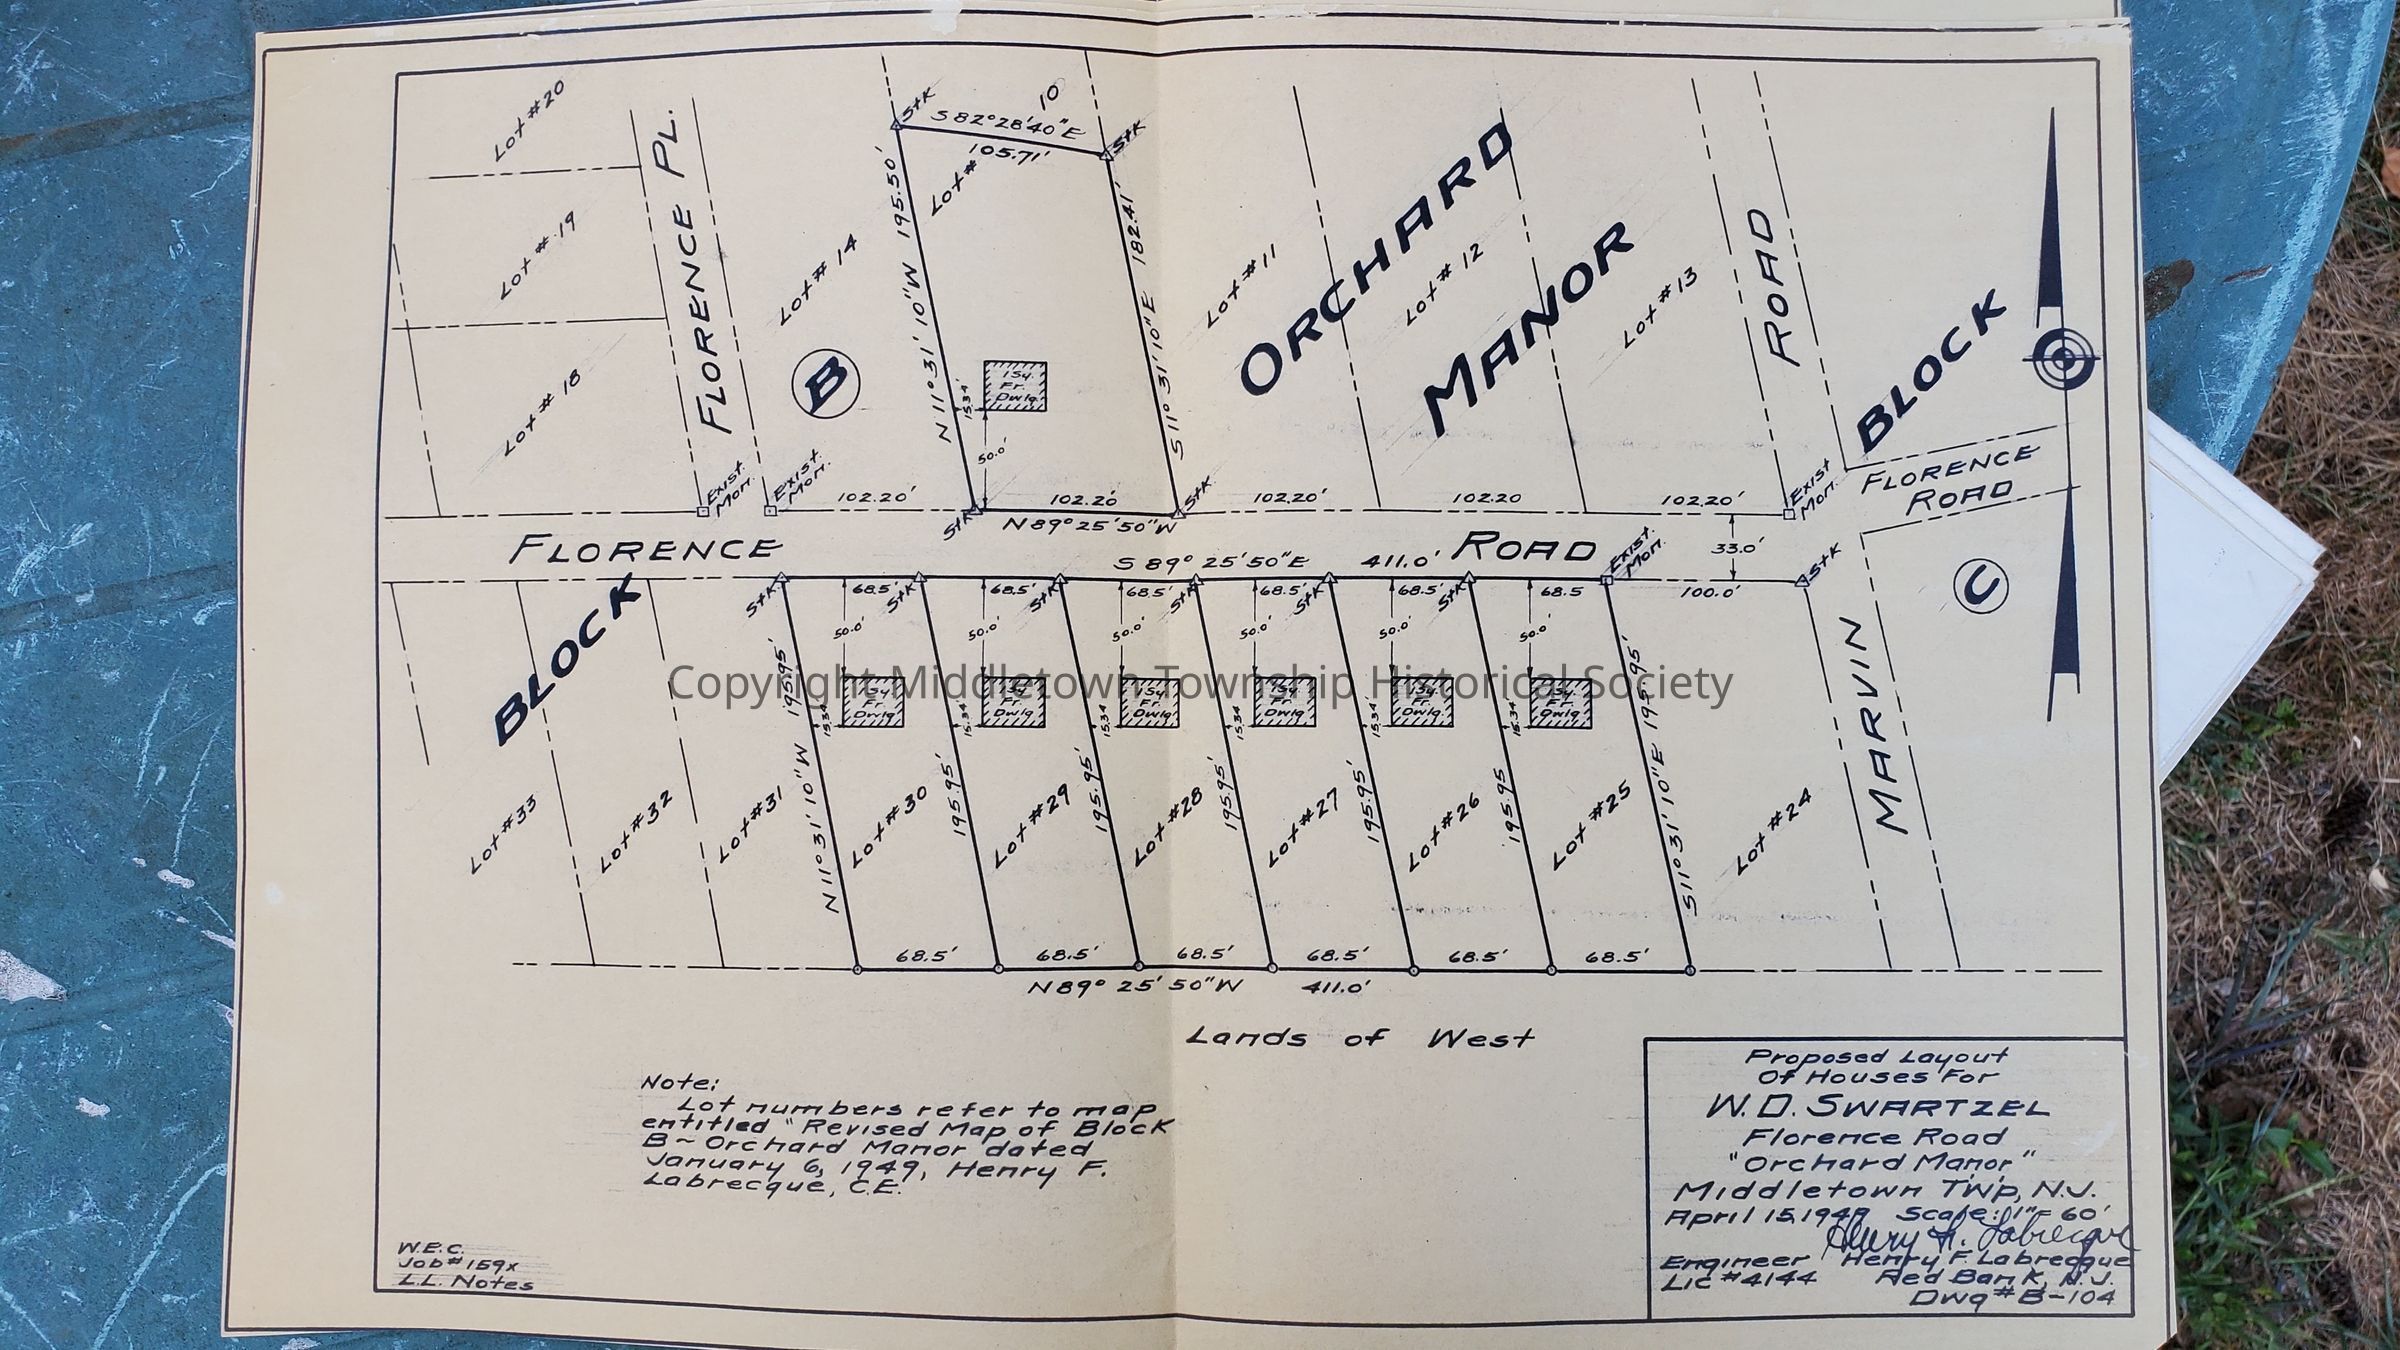 Lot #20
Lot # 19
Lot # 18
FLORENCE PL.
Lot # 14
B
Stk
Stk
10
S 82° 28' 40" E
105.71'
Lot #
N 11° 31' 10" W 195.50'
S 11° 31' 10" E 182.41'
1 Sy.
Fr.
Dwlg.
15.34'
50.0'
Lot # 11
Lot # 12
Lot # 13
ORCHARD
MANOR
ROAD
BLOCK
FLORENCE
ROAD
Exist.
Mon.
Exist.
Mon.
102.20'
Stk
102.20'
N 89° 25' 50" W
Stk
102.20'
102.20
102.20'
Exist
Mon.
FLORENCE
S 89° 25' 50" E 411.0'
ROAD
Exist.
Mon.
33.0'
Stk
C
BLOCK
Stk
68.5'
Stk
68.5'
Stk
68.5'
Stk
68.5'
Stk
68.5'
Stk
68.5
100.0'
50.0'
50.0'
50.0'
50.0'
50.0'
50.0'
Copyright Middletown Township Historical Society
1 Sy
Fr.
Dwlg.
1 Sy
Fr.
Dwlg.
1 Sy
Fr.
Dwlg.
1 Sy
Fr.
Dwlg.
1 Sy
Fr.
Dwlg.
1 Sy
Fr.
Dwlg.
15.34
15.34
15.34
15.34
15.34
15.34
MARVIN
N 11° 31' 10" W 195.95'
195.95'
195.95'
195.95'
195.95'
195.95
S 11° 31' 10" E 195.95'
Lot #33
Lot #32
Lot #31
Lot #30
Lot #29
Lot #28
Lot #27
Lot #26
Lot #25
Lot #24
68.5'
68.5'
68.5'
68.5'
68.5'
68.5'
N 89° 25' 50" W 411.0'
Lands of West
Note:
Lot numbers refer to map
entitled "Revised Map of Block
B ~ Orchard Manor dated
January 6, 1949, Henry F.
Labrecque, C.E.
W.E.C.
Job # 159x
L.L. Notes
Proposed Layout
Of Houses For
W. D. SWARTZEL
Florence Road
"Orchard Manor"
Middletown Twp., N.J.
April 15, 1949 Scale: 1" = 60'
Henry F. Labrecque
Engineer Henry F. Labrecque
Lic #4144 Red Bank, N.J.
Dwg # B-104